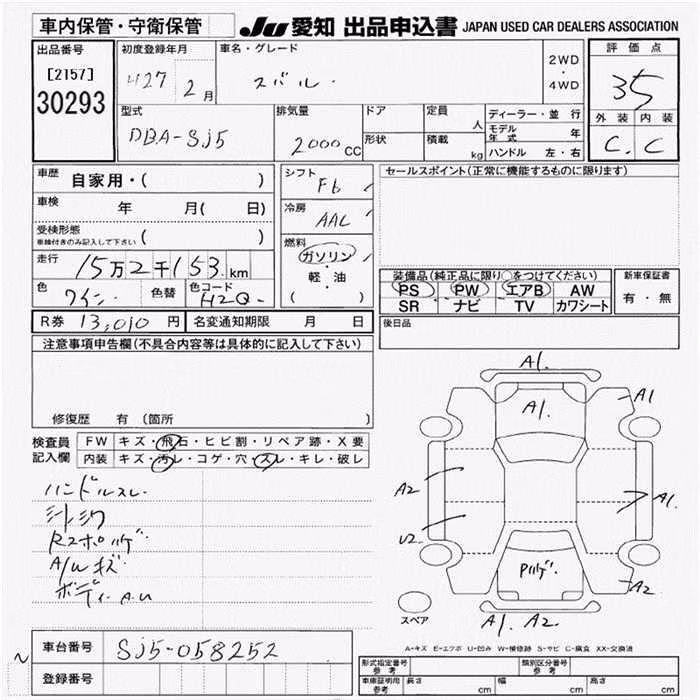 車内保管・守衛保管
JU 愛知 出品申込書 JAPAN USED CAR DEALERS ASSOCIATION
出品番号 初度登録年月 車名・グレード 2WD ・ 4WD 評価点
[2157] H27 2月 スバル 35
30293
型式 排気量 ドア 定員 人 ディーラー・並 行 外装 内装
DBA-SJ5 2000cc 形状 積載 kg モデル年式 年 C. C
ハンドル 左・右
車歴 自家用・( ) シフト F6 セールスポイント(正常に機能するものに限ります)
車検 年 月( 日) 冷房 AAC
受検形態 ( )
車検付きのみ記入して下さい
燃料 ガソリン・軽・油 ( )
走行 15万2千153km
装備品(純正品に限り○をつけてください) 新車保証書
色 ワイン 色替 色コード H2Q
PS PW エアB AW 有・無
SR ナビ TV カワシート
R券 13,010円 名変通知期限 月 日 後日品
注意事項申告欄(不具合内容等は具体的に記入して下さい)
修復歴 有 (箇所 )
検査員記入欄 FW キズ・飛石・ヒビ割・リペア跡・X要
内装 キズ・汚レ・コゲ・穴・スレ・キレ・破レ
ハンドルスレ
シートシワ
A/Wキズ
A1.
A1
A1.
A2
A1.
U2
A2
A1. A2.
スペア
A-キズ E-エクボ U-凹み W-補修跡 S-サビ C-腐食 XX-交換済
車台番号 SJ5-058252
登録番号
形式指定番号 参考 類別区分番号 参考
車庫証明用 参考 長さ cm 幅 cm 高さ cm